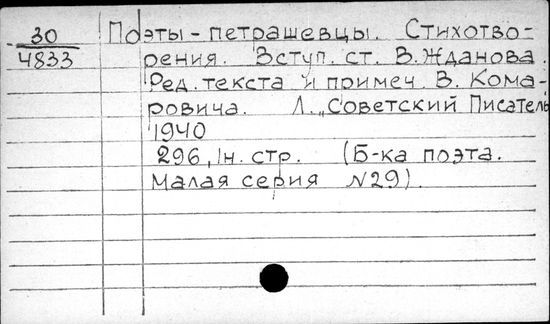 30
4833
Поэты-петрашевцы. Стихотво-
рения. Вступ. ст. В. Жданова.
Ред. текста и примеч. В. Кома-
ровича. Л. „Советский Писатель
1940
296, 1н. стр. (Б-ка поэта.
Малая серия N29).